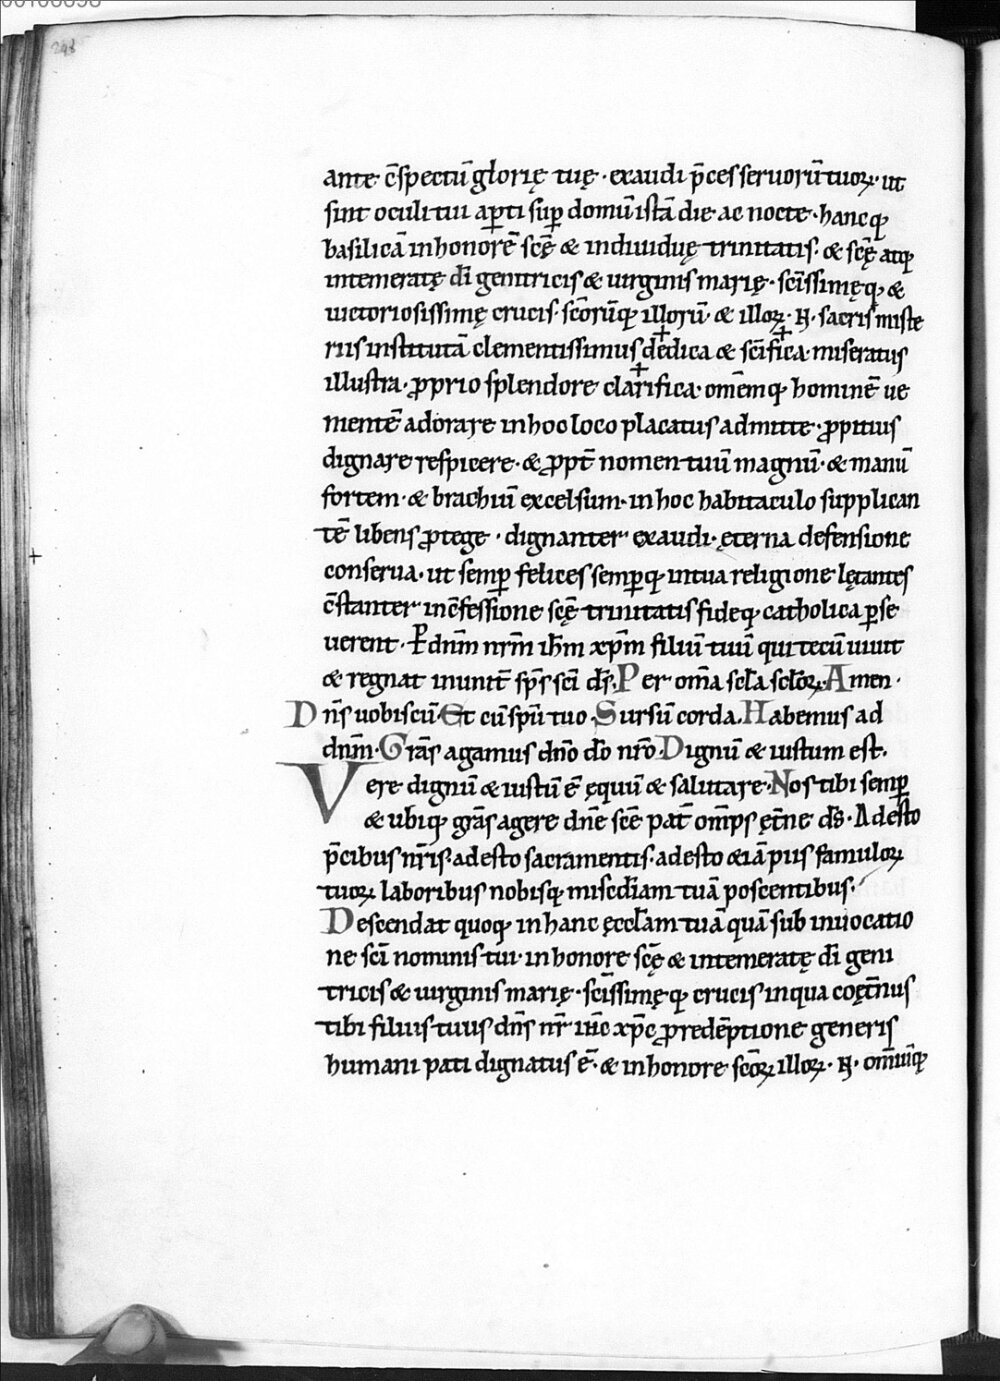 248
ante c̄spectū glorię tuę · exaudi p̄ces seruorū tuoꝝ · ut
sint oculi tui apti sup domū istā die ac nocte · hancq;
basilicā in honorē scę̄ & indiuiduę trinitatis · & scę̄ atq;
intemeratę dī genitricis & uirginis marię · sc̄issimęq; &
uictoriosissimę crucis · sc̄orūq; illorū & illoꝝ · N · sacris miste
riis institutā clementissimus dedica & sc̄ifica · miseratus
illustra · ꝓprio splendore clarifica · om̄emq; hominē ue
mentē adorare in hoc loco placatus admitte · ꝓpitius
dignare respicere · & ꝓpt̄ nomen tuū magnū · & manū
fortem · & brachiū excelsum · in hoc habitaculo supplican
tē libens ꝓtege · dignanter exaudi · ęterna defensione
conserua · ut semp̲ felices semp̲q; in tua religione lętantes
c̄stanter in c̄fessione scę̄ trinitatis fideq; catholica ꝑse
uerent · P̲ dnm̄ nrm̄ ihm̄ xp̄m filiū tuū qui tecū uiuit
& regnat in unit̄ sp̄s sc̄i ds̄. Per om̄a scl̄a scl̄oꝝ. Amen ·
Dn̄s uobiscū. Et cū sp̄u tuo. Sursū corda. Habemus ad
dnm̄. Grās agamus dn̄o dō nrō. Dignū & iustum est.
Vere dignū & iustū ē ęquū & salutare. Nos tibi semp̲
& ubiq; grās agere dn̄e scē pat̄ om̄ps ęt̄ne ds̄ · Adesto
p̄cibus nr̄is · adesto sacramentis · adesto & iā piis famuloꝝ
tuoꝝ laboribus nobisq; mis̄cdiam tuā poscentibus ·
Descendat quoq; in hanc ęccl̄am tuā quā sub inuocatio
ne sc̄i nominis tui · in honore scę̄ & intemeratę dī geni
tricis & uirginis marię · sc̄issimę q; crucis in qua coęt̄nus
tibi filius tuus dn̄s nr̄ ihc̄ xp̄c ꝓ redēptione generis
humani pati dignatus ē · & in honore sc̄oꝝ illoꝝ · N · om̄iūq;